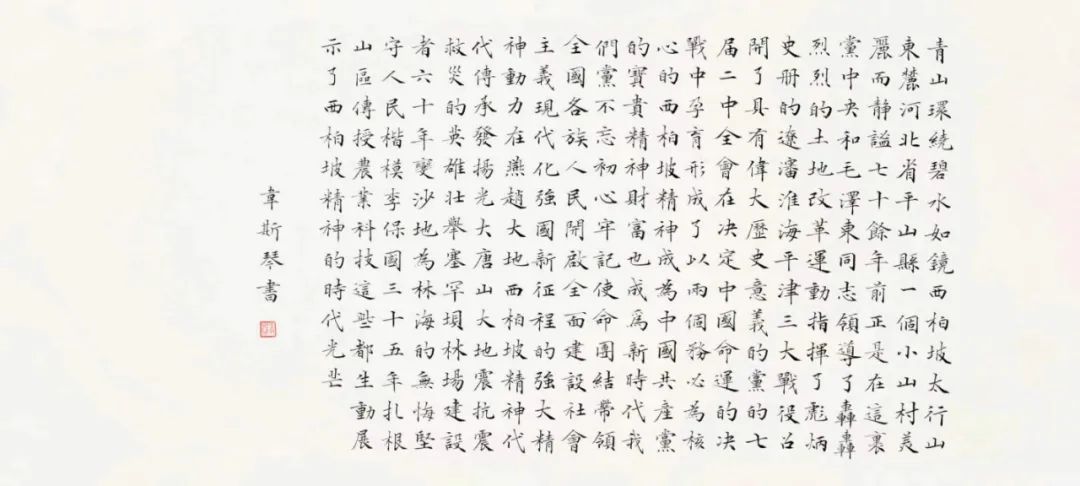 青山環繞碧水如鏡西柏坡太行山
東麓河北省平山縣一個小山村美
麗而靜謐七十餘年前正是在這裏
黨中央和毛澤東同志領導了轟轟
烈烈的土地改革運動指揮了彪炳
史册的遼瀋淮海平津三大戰役召
開了具有偉大歷史意義的黨的七
届二中全會在决定中國命運的决
戰中孕育形成了以兩個務必為核
心的西柏坡精神成為中國共產黨
的寶貴精神財富也成爲新時代我
們黨不忘初心牢記使命團結帶領
全國各族人民開啟全面建設社會
主義現代化強國新征程的強大精
神動力在燕趙大地西柏坡精神代
代傳承發揚光大唐山大地震抗震
救災的英雄壯舉塞罕壩林場建設
者六十年變沙地為林海的無悔堅
守人民楷模李保國三十五年扎根
山區傳授農業科技這些都生動展
示了西柏坡精神的時代光芒
韋斯琴書